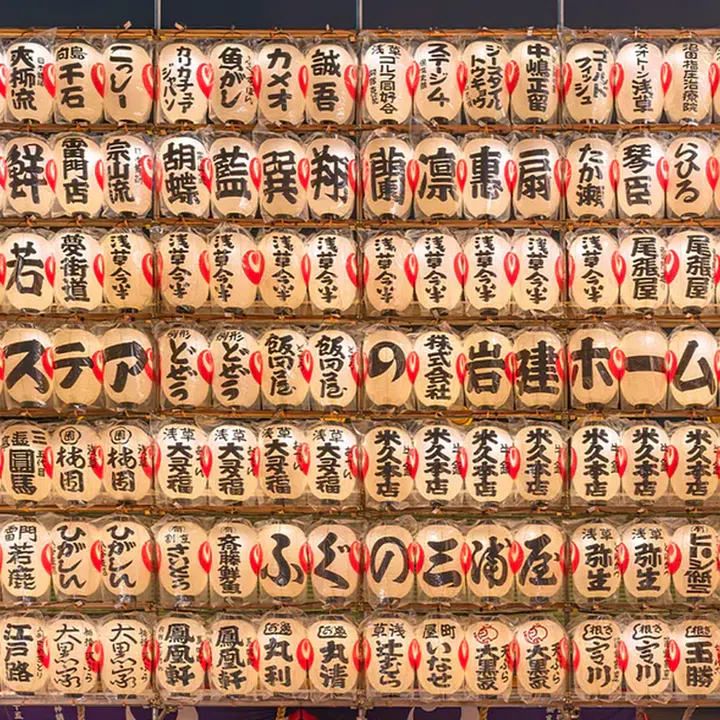 大柳流 向島 千石 ニュー カリカチュア・ジャパン 魚がし カメオ 誠吾 浅草ゴルフ同好会 ステージ4 中嶋正留 ゴールドフィッシュ 浅草 沼田指圧治療院
鮮 雷門店 宗山流 胡蝶 藍 巽 翔 蘭 凛 恵 扇 たか瀬 琴臣 らひる
若 夢街道 浅草今半 浅草今半 浅草今半 浅草今半 浅草今半 浅草今半 浅草今半 浅草今半 浅草今半 浅草今半 尾張屋 尾張屋
ステア 駒形 どぜう 駒形 どぜう 飯田屋 飯田屋 の 株式会社 岩建ホーム
梅園 梅園 浅草 大黒福 浅草 大黒福 浅草 大黒福 浅草 大黒福 米久本店 米久本店 米久本店 米久本店 米久本店 米久本店 米久本店
雷門 ひがしん ひがしん さいとう 斎藤鮮魚 ふぐの三浦屋 浅草 弥生 浅草 弥生
江戸路 大黒家 大黒家 鳳凰軒 鳳凰軒 丸利 丸清 浅草 辻むら いなせ 大黒家 天ぷら 大黒家 天ぷら 玉勝